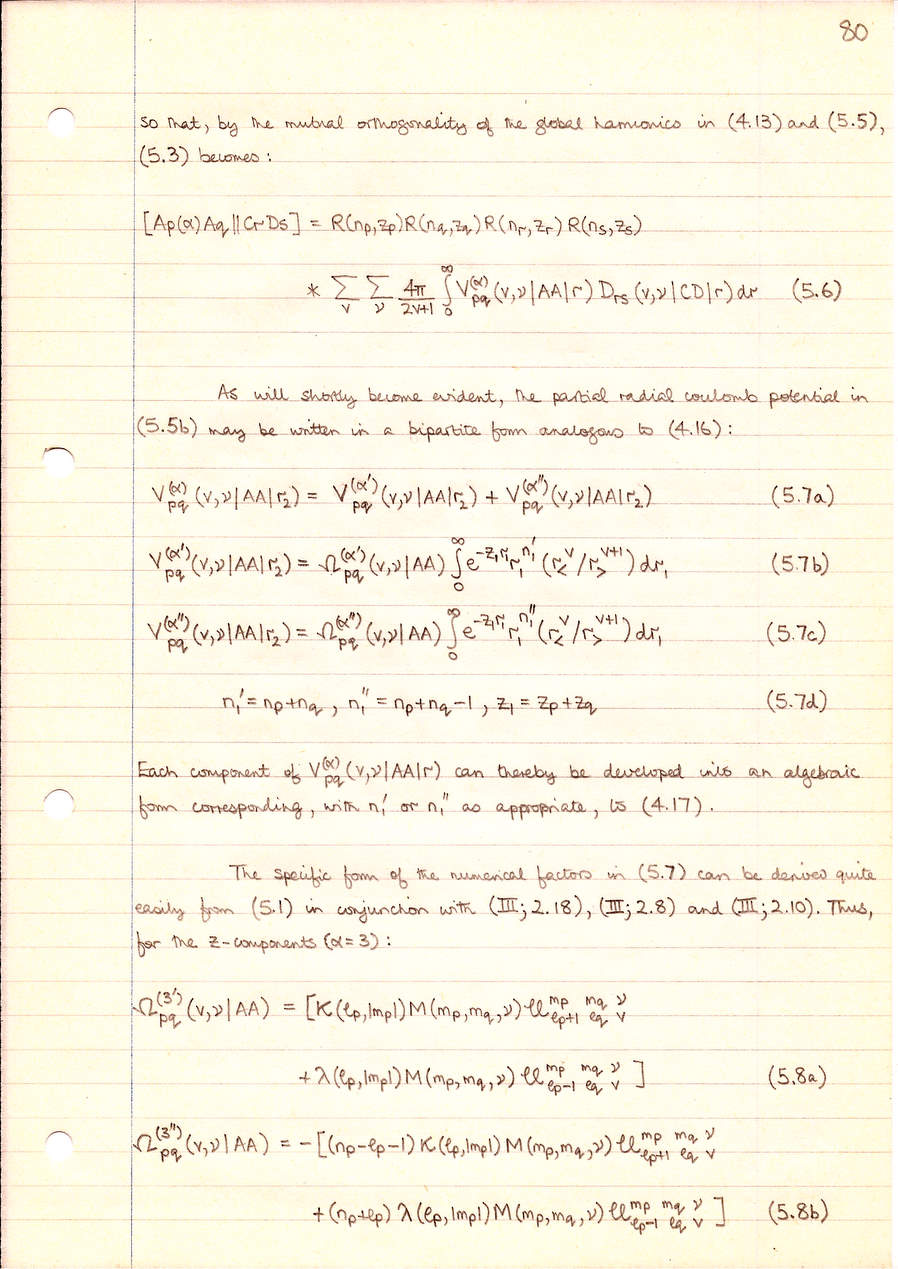 80
so that, by the mutual orthogonality of the global harmonics in (4.13) and (5.5),
(5.3) becomes:
[Ap(α)Aq||CrDs] = R(np,zp)R(nq,zq)R(nr,zr)R(ns,zs)
* ∑_v ∑_ν 4π/(2v+1) ∫_0^∞ V_pq^(α)(v,ν|AA|r) D_rs(v,ν|CD|r) dr (5.6)
As will shortly become evident, the partial radial coulomb potential in
(5.5b) may be written in a bipartite form analogous to (4.16):
V_pq^(α)(v,ν|AA|r₂) = V_pq^(α')(v,ν|AA|r₂) + V_pq^(α'')(v,ν|AA|r₂) (5.7a)
V_pq^(α')(v,ν|AA|r₂) = Ω_pq^(α')(v,ν|AA) ∫_0^∞ e^{-z₁r₁} r₁^{n₁'} (r_<^v / r_>^{v+1}) dr₁ (5.7b)
V_pq^(α'')(v,ν|AA|r₂) = Ω_pq^(α'')(v,ν|AA) ∫_0^∞ e^{-z₁r₁} r₁^{n₁''} (r_<^v / r_>^{v+1}) dr₁ (5.7c)
n₁' = np+nq , n₁'' = np+nq-1 , z₁ = zp+zq (5.7d)
Each component of V_pq^(α)(v,ν|AA|r) can thereby be developed into an algebraic
form corresponding, with n₁' or n₁'' as appropriate, to (4.17).
The specific form of the numerical factors in (5.7) can be derived quite
easily from (5.1) in conjunction with (III; 2.18), (III; 2.8) and (III; 2.10). Thus,
for the z-components (α=3):
Ω_pq^(3')(v,ν|AA) = [K(ℓp,|mp|) M(mp,mq,ν) 𝒰_{ℓp+1 ℓq v}^{mp mq ν}
+ λ(ℓp,|mp|) M(mp,mq,ν) 𝒰_{ℓp-1 ℓq v}^{mp mq ν} ] (5.8a)
Ω_pq^(3'')(v,ν|AA) = -[(np-ℓp-1) K(ℓp,|mp|) M(mp,mq,ν) 𝒰_{ℓp+1 ℓq v}^{mp mq ν}
+ (np+ℓp) λ(ℓp,|mp|) M(mp,mq,ν) 𝒰_{ℓp-1 ℓq v}^{mp mq ν} ] (5.8b)